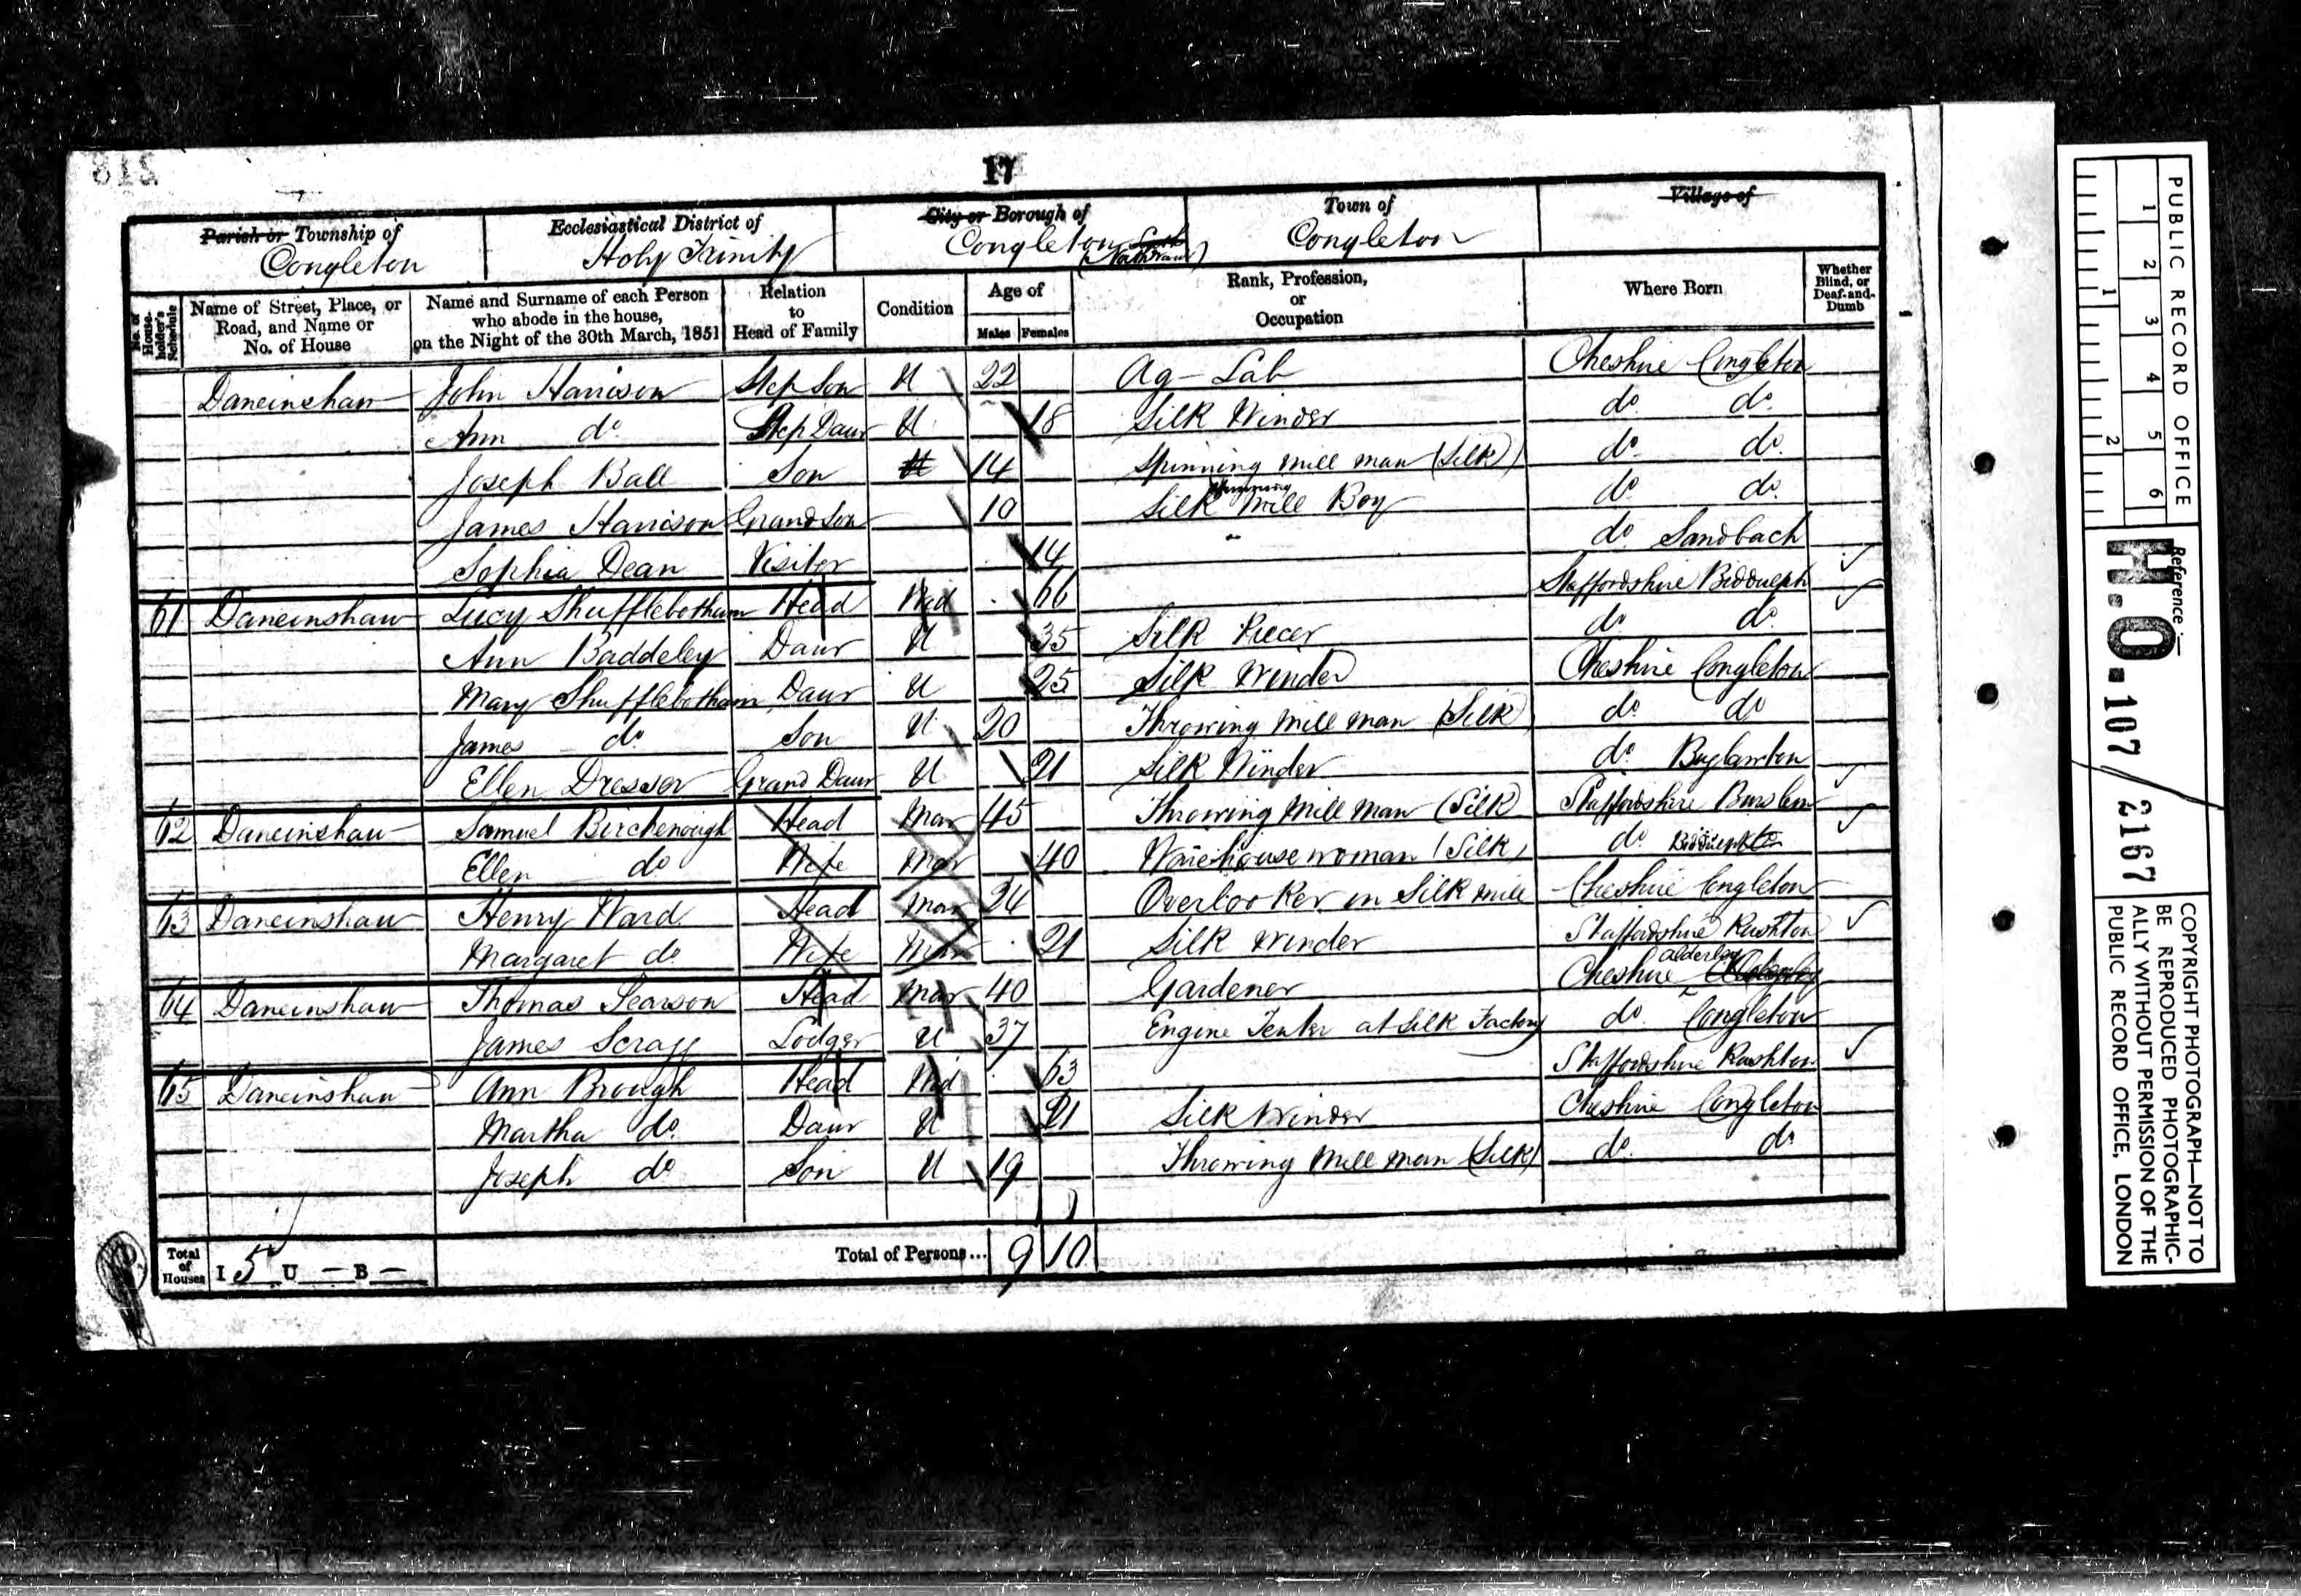 17
Parish or Township of
Congleton
Ecclesiastical District of
Holy Trinity
City or Borough of
Congleton
Town of
Congleton
Village of
No. of House-holder's Schedule
Name of Street, Place, or Road, and Name or No. of House
Name and Surname of each Person who abode in the house, on the Night of the 30th March, 1851
Relation to Head of Family
Condition
Age of
Males Females
Rank, Profession, or Occupation
Where Born
Whether Blind, or Deaf-and-Dumb
Daneinshaw John Harrison Step Son U 22 Ag-Lab Cheshire Congleton
Ann do Step Daur U 18 Silk Winder do do
Joseph Ball Son U 14 Spinning Mill Man (Silk) do do
James Harrison Grand Son 10 Silk Spinning Mill Boy do do
Sophia Dean Visitor 14 do Sandbach
61 Daneinshaw Lucy Shufflebotham Head Wid 66 Staffordshire Biddulph
Ann Baddeley Daur U 35 Silk Piecer do do
Mary Shufflebotham Daur U 25 Silk Winder Cheshire Congleton
James do Son U 20 Throwing Mill Man (Silk) do do
Ellen Dresser Grand Daur U 21 Silk Winder do Buglawton
62 Daneinshaw Samuel Birchenough Head Mar 45 Throwing Mill Man (Silk) Staffordshire Burslem
Ellen do Wife Mar 40 Warehouse woman (Silk) do Biddulph
63 Daneinshaw Henry Ward Head Mar 24 Overlooker in Silk Mill Cheshire Congleton
Margaret do Wife Mar 21 Silk Winder Staffordshire Rushton
64 Daneinshaw Thomas Pearson Head Mar 40 Gardener Cheshire Alderley
James Scragg Lodger U 37 Engine Tenter at Silk Factory do Congleton
65 Daneinshaw Ann Brough Head Wid 63 Staffordshire Rushton
Martha do Daur U 21 Silk Winder Cheshire Congleton
Joseph do Son U 19 Throwing Mill Man (Silk) do do
Total of Houses I 5 U - B -
Total of Persons... 9 10
PUBLIC RECORD OFFICE
1 2 3 4 5 6
1 2
Reference:-
H.O. 107/2167
COPYRIGHT PHOTOGRAPH—NOT TO
BE REPRODUCED PHOTOGRAPHIC-
ALLY WITHOUT PERMISSION OF THE
PUBLIC RECORD OFFICE, LONDON